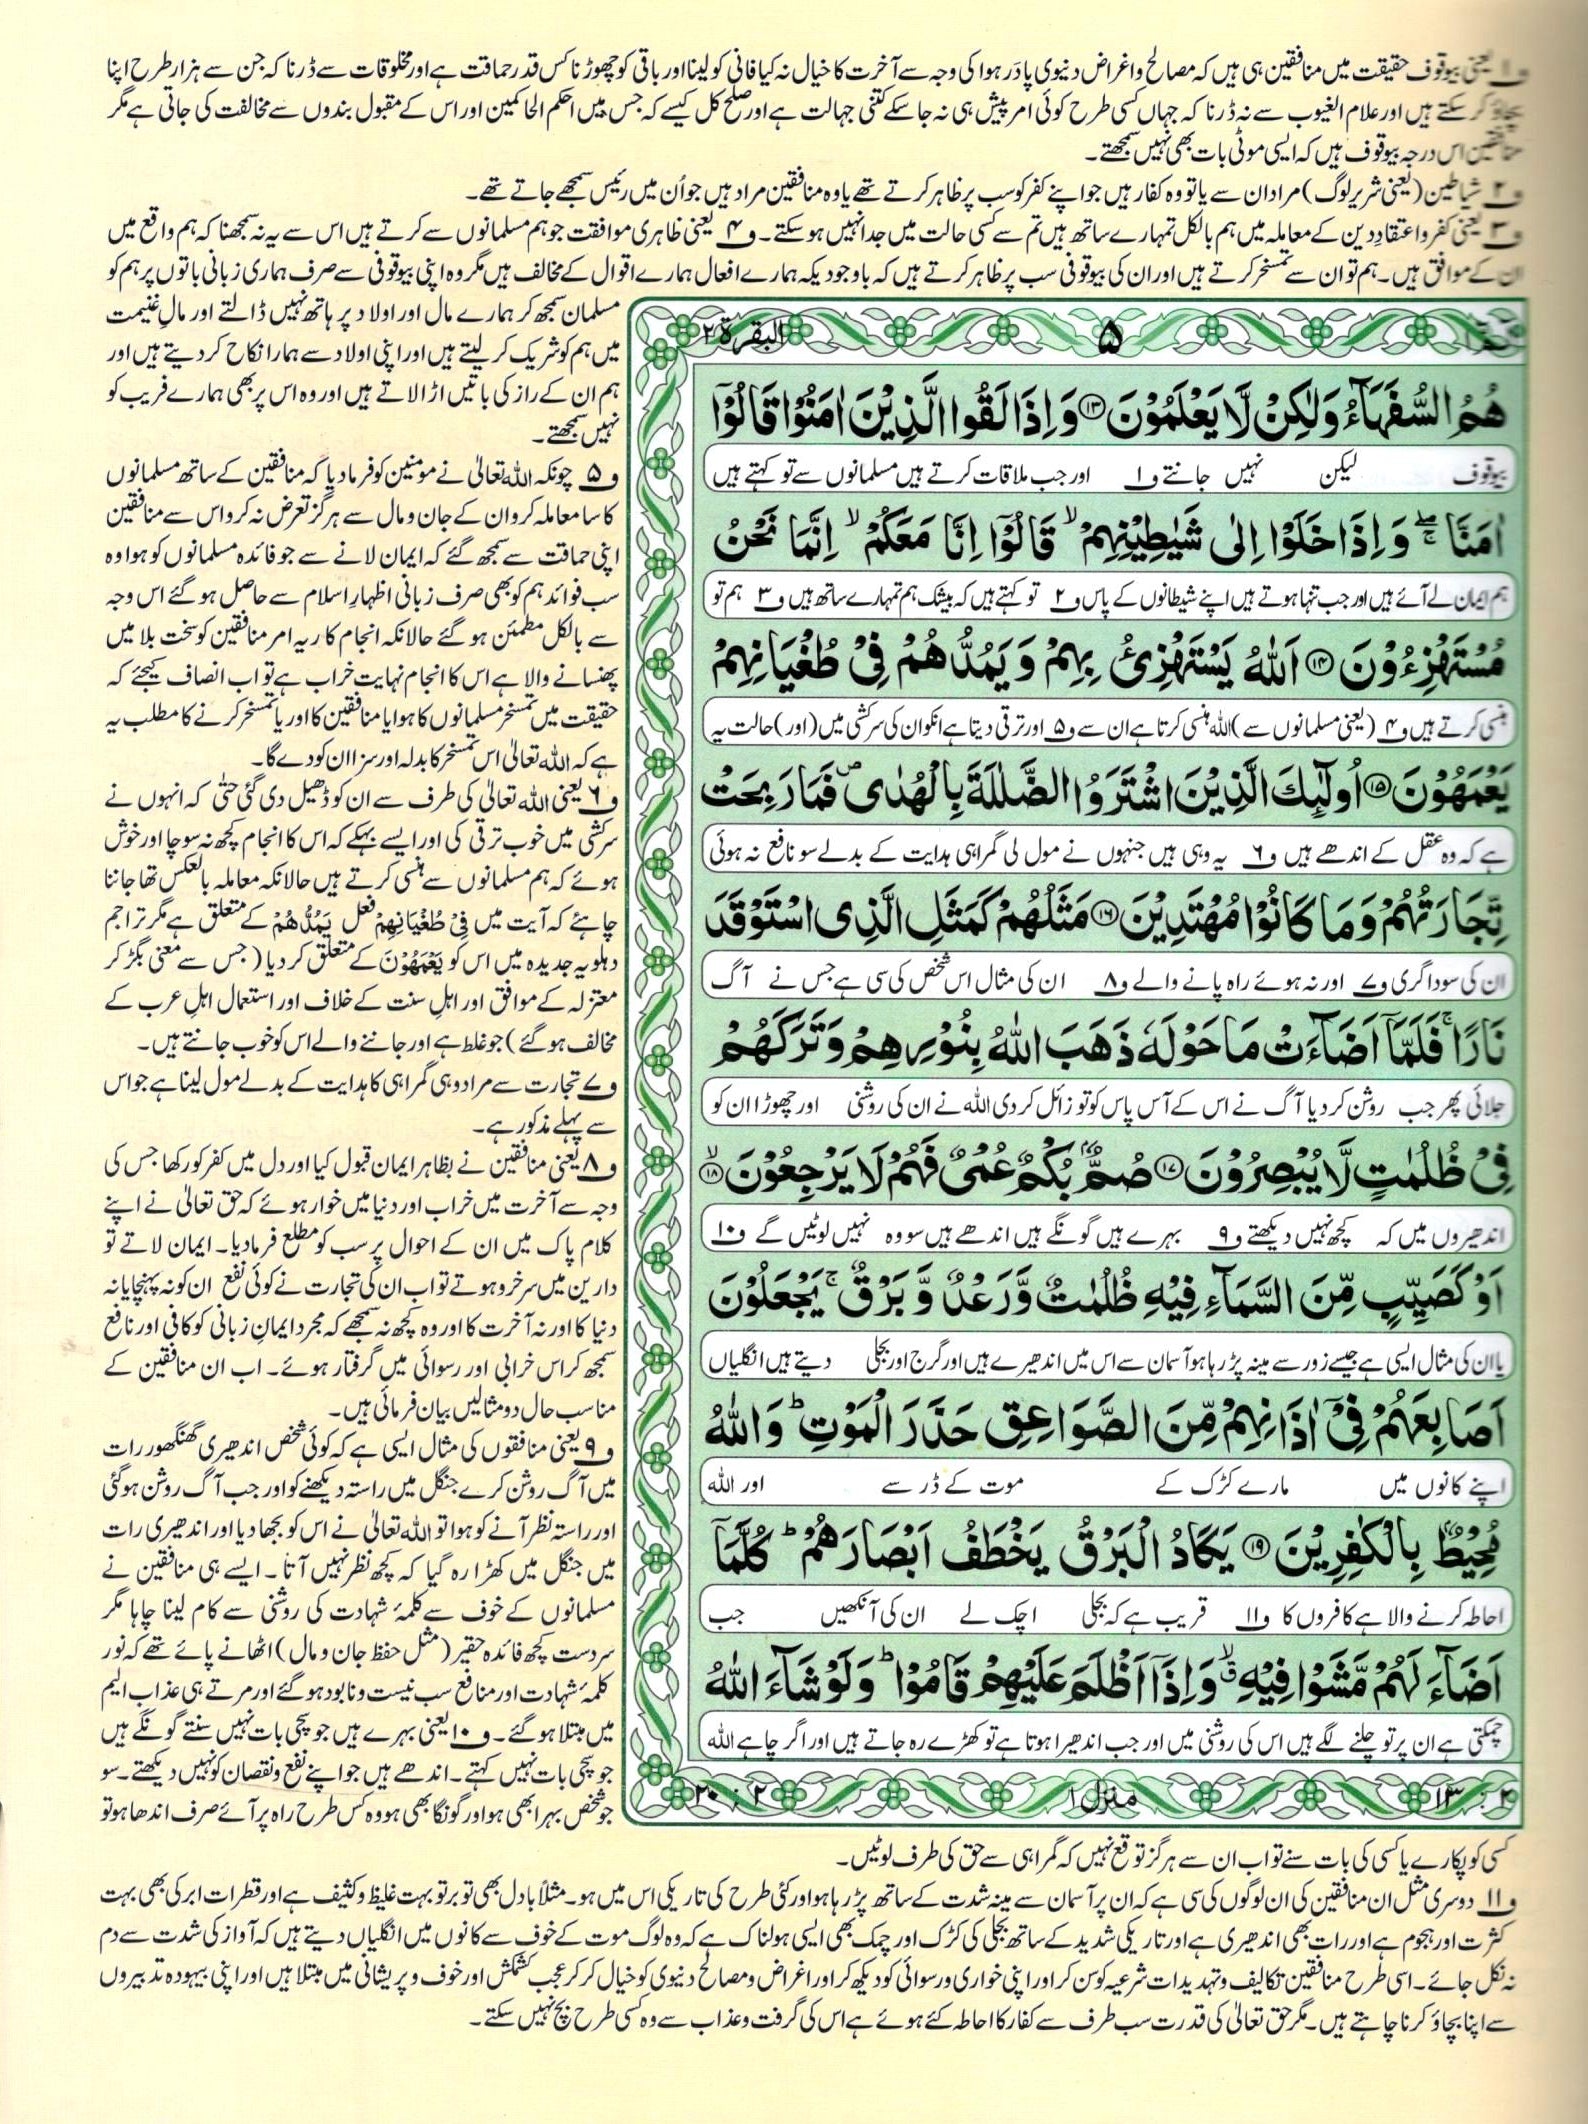 ف۱ یعنی بیوقوف حقیقت میں منافقین ہی ہیں کہ مصالح و اغراض دنیوی پا در ہوا کی وجہ سے آخرت کا خیال نہ کیا فانی کو لینا اور باقی کو چھوڑنا کس قدر حماقت ہے اور مخلوقات سے ڈرنا کہ جن سے ہزار طرح اپنا
بچاؤ کر سکتے ہیں اور علام الغیوب سے نہ ڈرنا کہ جہاں کسی طرح کوئی امر پیش ہی نہ جا سکے کتنی جہالت ہے اور صلح کل کیسے کہ جس میں احکم الحاکمین اور اس کے مقبول بندوں سے مخالفت کی جاتی ہے مگر
منافقین اس درجہ بیوقوف ہیں کہ ایسی موٹی بات بھی نہیں سمجھتے۔
ف۲ شیاطین (یعنی شریر لوگ) مراد ان سے یا تو وہ کفار ہیں جو اپنے کفر کو سب پر ظاہر کرتے تھے یا وہ منافقین مراد ہیں جو اُن میں رئیس سمجھے جاتے تھے۔
ف۳ یعنی کفر و اعتقادِ دین کے معاملہ میں ہم بالکل تمہارے ساتھ ہیں تم سے کسی حالت میں جدا نہیں ہو سکتے۔ ف۴ یعنی ظاہری موافقت جو ہم مسلمانوں سے کرتے ہیں اس سے یہ نہ سمجھنا کہ ہم واقع میں
ان کے موافق ہیں۔ ہم تو ان سے تمسخر کرتے ہیں اور ان کی بیوقوفی سب پر ظاہر کرتے ہیں کہ باوجودیکہ ہمارے افعال ہمارے اقوال کے مخالف ہیں مگر وہ اپنی بیوقوفی سے صرف ہماری زبانی باتوں پر ہم کو
مسلمان سمجھ کر ہمارے مال اور اولاد پر ہاتھ نہیں ڈالتے اور مالِ غنیمت
میں ہم کو شریک کر لیتے ہیں اور اپنی اولاد سے ہمارا نکاح کر دیتے ہیں اور
ہم ان کے راز کی باتیں اڑا لاتے ہیں اور وہ اس پر بھی ہمارے فریب کو
نہیں سمجھتے۔
ف۵ چونکہ اللہ تعالیٰ نے مومنین کو فرما دیا کہ منافقین کے ساتھ مسلمانوں
کا سا معاملہ کرو ان کے جان و مال سے ہرگز تعرض نہ کرو اس سے منافقین
اپنی حماقت سے سمجھ گئے کہ ایمان لانے سے جو فائدہ مسلمانوں کو ہوا وہ
سب فوائد ہم کو بھی صرف زبانی اظہارِ اسلام سے حاصل ہو گئے اس وجہ
سے بالکل مطمئن ہو گئے حالانکہ انجام کار یہ امر منافقین کو سخت بلا میں
پھنسانے والا ہے اس کا انجام نہایت خراب ہے تو اب انصاف کیجئے کہ
حقیقت میں تمسخر مسلمانوں کا ہوا یا منافقین کا اور یا تمسخر کرنے کا مطلب یہ
ہے کہ اللہ تعالیٰ اس تمسخر کا بدلہ اور سزا ان کو دے گا۔
ف۶ یعنی اللہ تعالیٰ کی طرف سے ان کو ڈھیل دی گئی حتٰی کہ انہوں نے
سرکشی میں خوب ترقی کی اور ایسے بہکے کہ اس کا انجام کچھ نہ سوچا اور خوش
ہوئے کہ ہم مسلمانوں سے ہنسی کرتے ہیں حالانکہ معاملہ بالعکس تھا جاننا
چاہئے کہ آیت میں فِیْ طُغْیَانِهِمْ فعل یَمُدُّهُمْ کے متعلق ہے مگر تراجم
دہلویہ جدیدہ میں اس کو یَعْمَهُوْنَ کے متعلق کر دیا (جس سے معنی بگڑ کر
معتزلہ کے موافق اور اہلِ سنت کے خلاف اور استعمال اہلِ عرب کے
مخالف ہو گئے) جو غلط ہے اور جاننے والے اس کو خوب جانتے ہیں۔
ف۷ تجارت سے مراد وہی گمراہی کا ہدایت کے بدلے مول لینا ہے جو اس
سے پہلے مذکور ہے۔
ف۸ یعنی منافقین نے بظاہر ایمان قبول کیا اور دل میں کفر کو رکھا جس کی
وجہ سے آخرت میں خراب اور دنیا میں خوار ہوئے کہ حق تعالیٰ نے اپنے
کلام پاک میں ان کے احوال پر سب کو مطلع فرما دیا۔ ایمان لاتے تو
دارین میں سرخرو ہوتے تو اب ان کی تجارت نے کوئی نفع ان کو نہ پہنچایا نہ
دنیا کا اور نہ آخرت کا اور وہ کچھ نہ سمجھے کہ مجرد ایمانِ زبانی کو کافی اور نافع
سمجھ کر اس خرابی اور رسوائی میں گرفتار ہوئے۔ اب ان منافقین کے
مناسب حال دو مثالیں بیان فرمائی ہیں۔
ف۹ یعنی منافقوں کی مثال ایسی ہے کہ کوئی شخص اندھیری گھنگھور رات
میں آگ روشن کرے جنگل میں راستہ دیکھنے کو اور جب آگ روشن ہو گئی
اور راستہ نظر آنے کو ہوا تو اللہ تعالیٰ نے اس کو بجھا دیا اور اندھیری رات
میں جنگل میں کھڑا رہ گیا کہ کچھ نظر نہیں آتا۔ ایسے ہی منافقین نے
مسلمانوں کے خوف سے کلمۂ شہادت کی روشنی سے کام لینا چاہا مگر
سردست کچھ فائدہ حقیر (مثل حفظ جان و مال) اٹھانے پائے تھے کہ نور
کلمۂ شہادت اور منافع سب نیست و نابود ہو گئے اور مرتے ہی عذاب الیم
میں مبتلا ہو گئے۔ ف۱۰ یعنی بہرے ہیں جو سچی بات نہیں سنتے گونگے ہیں
جو سچی بات نہیں کہتے۔ اندھے ہیں جو اپنے نفع و نقصان کو نہیں دیکھتے۔ سو
جو شخص بہرا بھی ہو اور گونگا بھی ہو وہ کس طرح راہ پر آئے صرف اندھا ہو تو
البقرة ۲
۵
هُمُ السُّفَهَآءُ وَلٰكِنْ لَّا يَعْلَمُوْنَ ۝۱۳ وَاِذَا لَقُوا الَّذِيْنَ اٰمَنُوْا قَالُوْٓا
بیوقوف لیکن نہیں جانتے ف۱ اور جب ملاقات کرتے ہیں مسلمانوں سے تو کہتے ہیں
اٰمَنَّا ۖۚ وَاِذَا خَلَوْا اِلٰى شَيٰطِيْنِهِمْ ۙ قَالُوْٓا اِنَّا مَعَكُمْ ۙ اِنَّمَا نَحْنُ
ہم ایمان لے آئے ہیں اور جب تنہا ہوتے ہیں اپنے شیطانوں کے پاس ف۲ تو کہتے ہیں کہ بیشک ہم تمہارے ساتھ ہیں ف۳ ہم تو
مُسْتَهْزِءُوْنَ ۝۱۴ اَللّٰهُ يَسْتَهْزِئُ بِهِمْ وَيَمُدُّهُمْ فِيْ طُغْيَانِهِمْ
ہنسی کرتے ہیں ف۴ (یعنی مسلمانوں سے) اللہ ہنسی کرتا ہے ان سے ف۵ اور ترقی دیتا ہے انکو ان کی سرکشی میں (اور) حالت یہ
يَعْمَهُوْنَ ۝۱۵ اُولٰٓئِكَ الَّذِيْنَ اشْتَرَوُا الضَّلٰلَةَ بِالْهُدٰى ۪ فَمَا رَبِحَتْ
ہے کہ وہ عقل کے اندھے ہیں ف۶ یہ وہی ہیں جنہوں نے مول لی گمراہی ہدایت کے بدلے سو نافع نہ ہوئی
تِّجَارَتُهُمْ وَمَا كَانُوْا مُهْتَدِيْنَ ۝۱۶ مَثَلُهُمْ كَمَثَلِ الَّذِى اسْتَوْقَدَ
ان کی سوداگری ف۷ اور نہ ہوئے راہ پانے والے ف۸ ان کی مثال اس شخص کی سی ہے جس نے آگ
نَارًا ۚ فَلَمَّآ اَضَآءَتْ مَا حَوْلَهٗ ذَهَبَ اللّٰهُ بِنُوْرِهِمْ وَتَرَكَهُمْ
جلائی پھر جب روشن کر دیا آگ نے اس کے آس پاس کو تو زائل کر دی اللہ نے ان کی روشنی اور چھوڑا ان کو
فِيْ ظُلُمٰتٍ لَّا يُبْصِرُوْنَ ۝۱۷ صُمٌّۢ بُكْمٌ عُمْىٌ فَهُمْ لَا يَرْجِعُوْنَ ۝۱۸ ۙ
اندھیروں میں کہ کچھ نہیں دیکھتے ف۹ بہرے ہیں گونگے ہیں اندھے ہیں سو وہ نہیں لوٹیں گے ف۱۰
اَوْ كَصَيِّبٍ مِّنَ السَّمَآءِ فِيْهِ ظُلُمٰتٌ وَّرَعْدٌ وَّبَرْقٌ ۚ يَجْعَلُوْنَ
یا ان کی مثال ایسی ہے جیسے زور سے مینہ پڑ رہا ہو آسمان سے اس میں اندھیرے ہیں اور گرج اور بجلی دیتے ہیں انگلیاں
اَصَابِعَهُمْ فِيْٓ اٰذَانِهِمْ مِّنَ الصَّوَاعِقِ حَذَرَ الْمَوْتِ ؕ وَاللّٰهُ
اپنے کانوں میں مارے کڑک کے موت کے ڈر سے اور اللہ
مُحِيْطٌۢ بِالْكٰفِرِيْنَ ۝۱۹ يَكَادُ الْبَرْقُ يَخْطَفُ اَبْصَارَهُمْ ؕ كُلَّمَآ
احاطہ کرنے والا ہے کافروں کا ف۱۱ قریب ہے کہ بجلی اچک لے ان کی آنکھیں جب
اَضَآءَ لَهُمْ مَّشَوْا فِيْهِ ۙ وَاِذَآ اَظْلَمَ عَلَيْهِمْ قَامُوْا ؕ وَلَوْ شَآءَ اللّٰهُ
چمکتی ہے ان پر تو چلنے لگے ہیں اس کی روشنی میں اور جب اندھیرا ہوتا ہے تو کھڑے رہ جاتے ہیں اور اگر چاہے اللہ
۲ : ۱۳
منزل ۱
۲ : ۲۰
کسی کو پکارے یا کسی کی بات سنے تو اب ان سے ہرگز توقع نہیں کہ گمراہی سے حق کی طرف لوٹیں۔
ف۱۱ دوسری مثل ان منافقین کی ان لوگوں کی سی ہے کہ ان پر آسمان سے مینہ شدت کے ساتھ پڑ رہا ہو اور کئی طرح کی تاریکی اس میں ہو۔ مثلاً بادل بھی تو بر تو بہت غلیظ و کثیف ہے اور قطرات ابر کی بھی بہت
کثرت اور ہجوم ہے اور رات بھی اندھیری ہے اور تاریکی شدید کے ساتھ بجلی کی کڑک اور چمک بھی ایسی ہولناک ہے کہ وہ لوگ موت کے خوف سے کانوں میں انگلیاں دیتے ہیں کہ آواز کی شدت سے دم
نہ نکل جائے۔ اسی طرح منافقین تکالیف و تہدیدات شرعیہ کو سن کر اور اپنی خواری و رسوائی کو دیکھ کر اور اغراض و مصالح دنیوی کو خیال کر کر عجب کشمکش اور خوف و پریشانی میں مبتلا ہیں اور اپنی بیہودہ تدبیروں
سے اپنا بچاؤ کرنا چاہتے ہیں۔ مگر حق تعالیٰ کی قدرت سب طرف سے کفار کا احاطہ کئے ہوئے ہے اس کی گرفت و عذاب سے وہ کسی طرح بچ نہیں سکتے۔